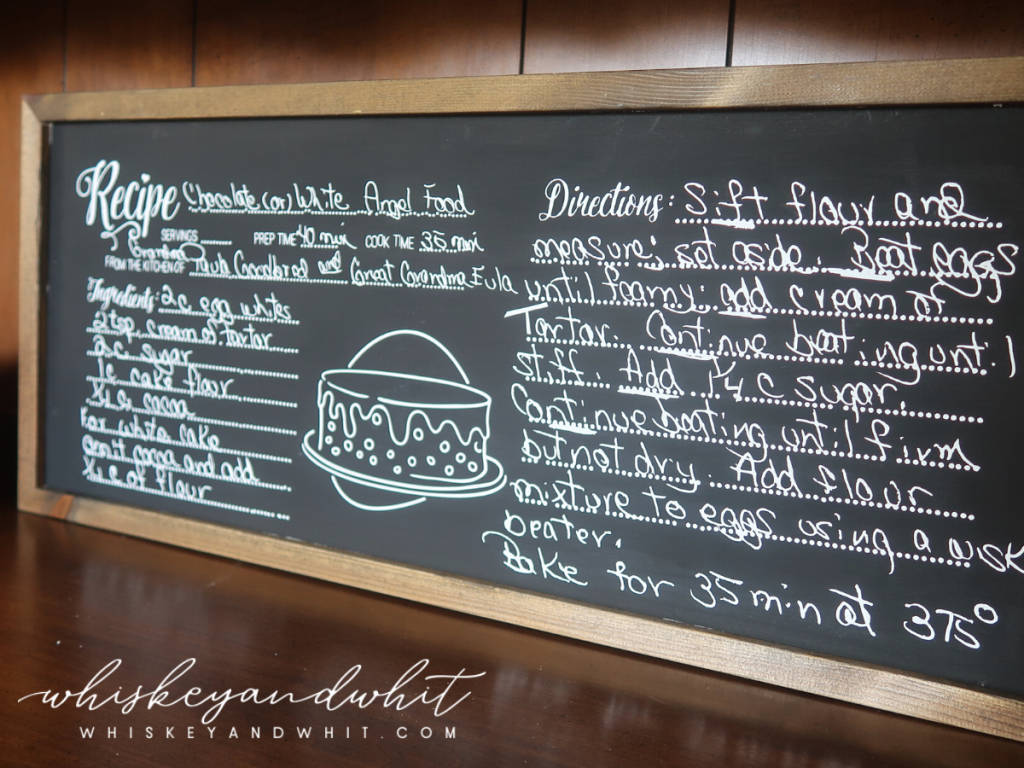 Recipe Chocolate (or) White Angel Food
SERVINGS PREP TIME 40 min COOK TIME 35 min
Grandma
FROM THE KITCHEN OF and Great Grandma Eula
Ingredients: 2 c. egg whites
2 tsp. cream of Tartar
sugar
1 c cake flour
1/4 c. cocoa
For white cake
omit cocoa and add
1/4 c of flour
Directions: Sift flour and
measure; set aside. Beat eggs
until foamy; add cream of
Tartar. Continue beating until
stiff. Add 1/4 c sugar.
Continue beating until firm
but not dry. Add flour
mixture to eggs using a wisk
beater.
Bake for 35 min at 375°
whiskeyandwhit
WHISKEYANDWHIT.COM